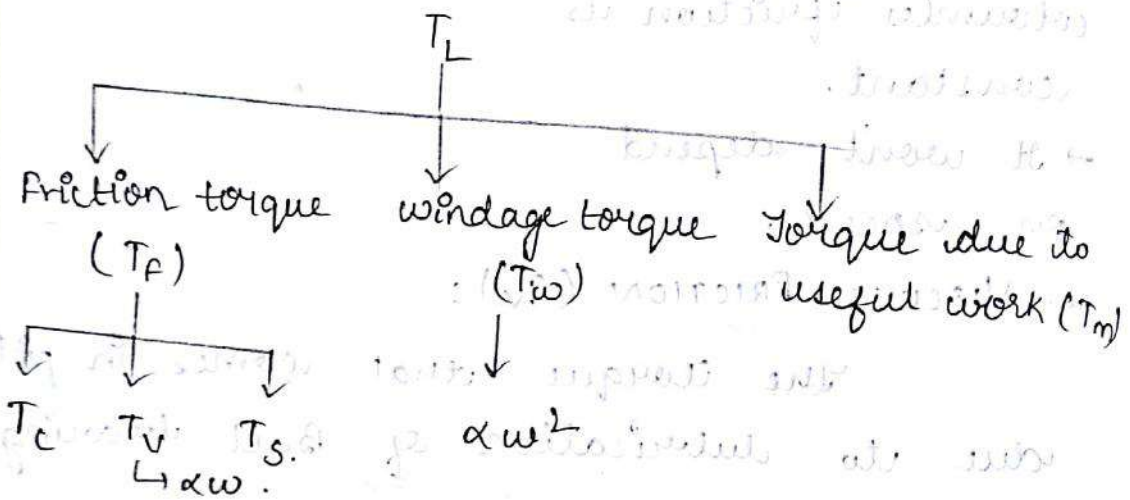 T_L
Friction torque windage torque Torque due to
(T_F) (T_w) useful work (T_m)
T_c T_v T_s. αω²
↳ αω.